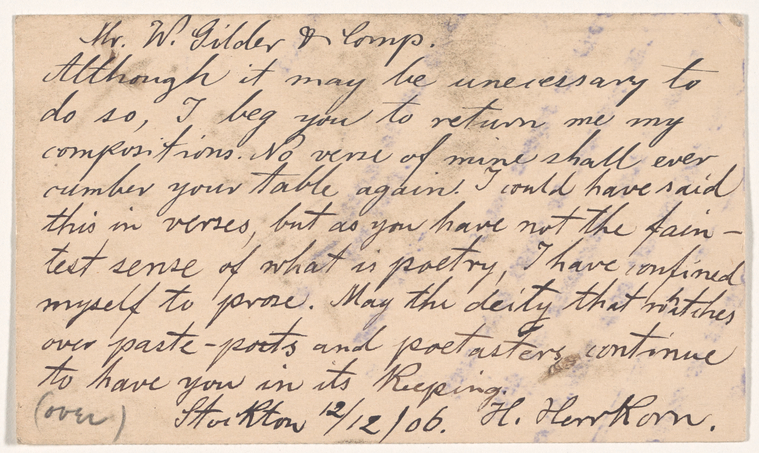 Mr. W. Gilder & Comp.
Although it may be unecessary to
do so, I beg you to return me my
compositions. No verse of mine shall ever
cumber your table again. I could have said
this in verses, but as you have not the fain-
test sense of what is poetry, I have confined
myself to prose. May the deity that watches
over paste-pots and poetasters continue
to have you in its Keeping.
(over) Stockton 12/12/06. H. Herrkorn.